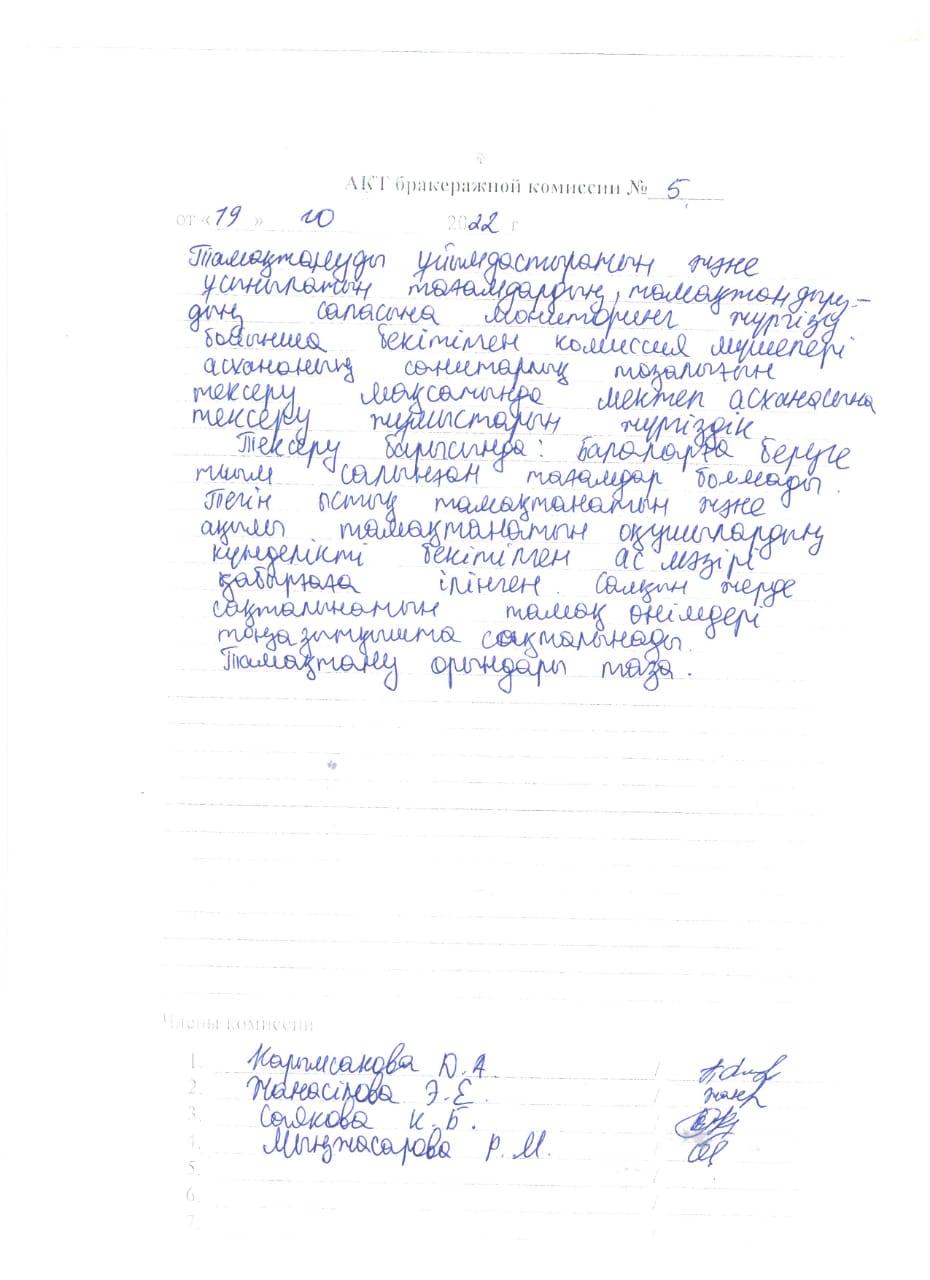 АКТ бракеражной комиссии № 5
от « 19 » 10 2022 г
Тамақтануды ұйымдастыратын және
ұсынылатын тағамдардың, тамақтандыру-
дың сапасына мониторинг жүргізу
бойынша бекітілген комиссия мүшелері
асхананың санитарлық тазалығын
тексеру мақсатында мектеп асханасына
тексеру жұмыстарын жүргіздік
Тексеру барысында: балаларға беруге
тиым салынған тағамдар болмады.
Тегін ыстық тамақтанатын және
ақылы тамақтанатын оқушылардың
күнделікті бекітілген ас мәзірі
қабырғаға ілінген. Салқын жерде
сақталынатын тамақ өнімдері
тоңазытқышта сақталынады.
Тамақтану орындары таза.
Члены комиссии
1. Карымсакова Д.А. /
2. Жанасілова Э.Е. /
3. Соякова К.Б. /
4. Мыңжасарова Р.М. /
5. /
6. /
7.